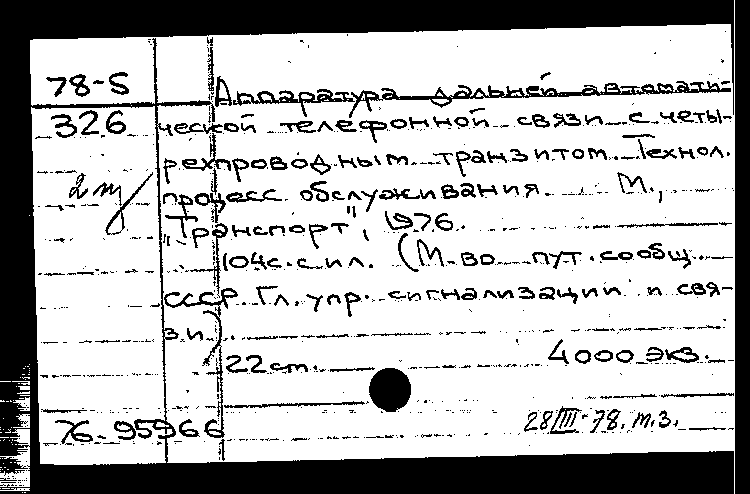 78-5 Аппаратура дальней автомати-
326 ческой телефонной связи с четы-
рехпроводным транзитом. Технол.
2 процесс обслуживания. М.,
"Транспорт", 1976.
104с. с ил. (М-во пут. сообщ.
СССР. Гл. упр. сигнализации и свя-
зи).
22 ст. 4000 экз.
76-95966 28/III-78. т.з.